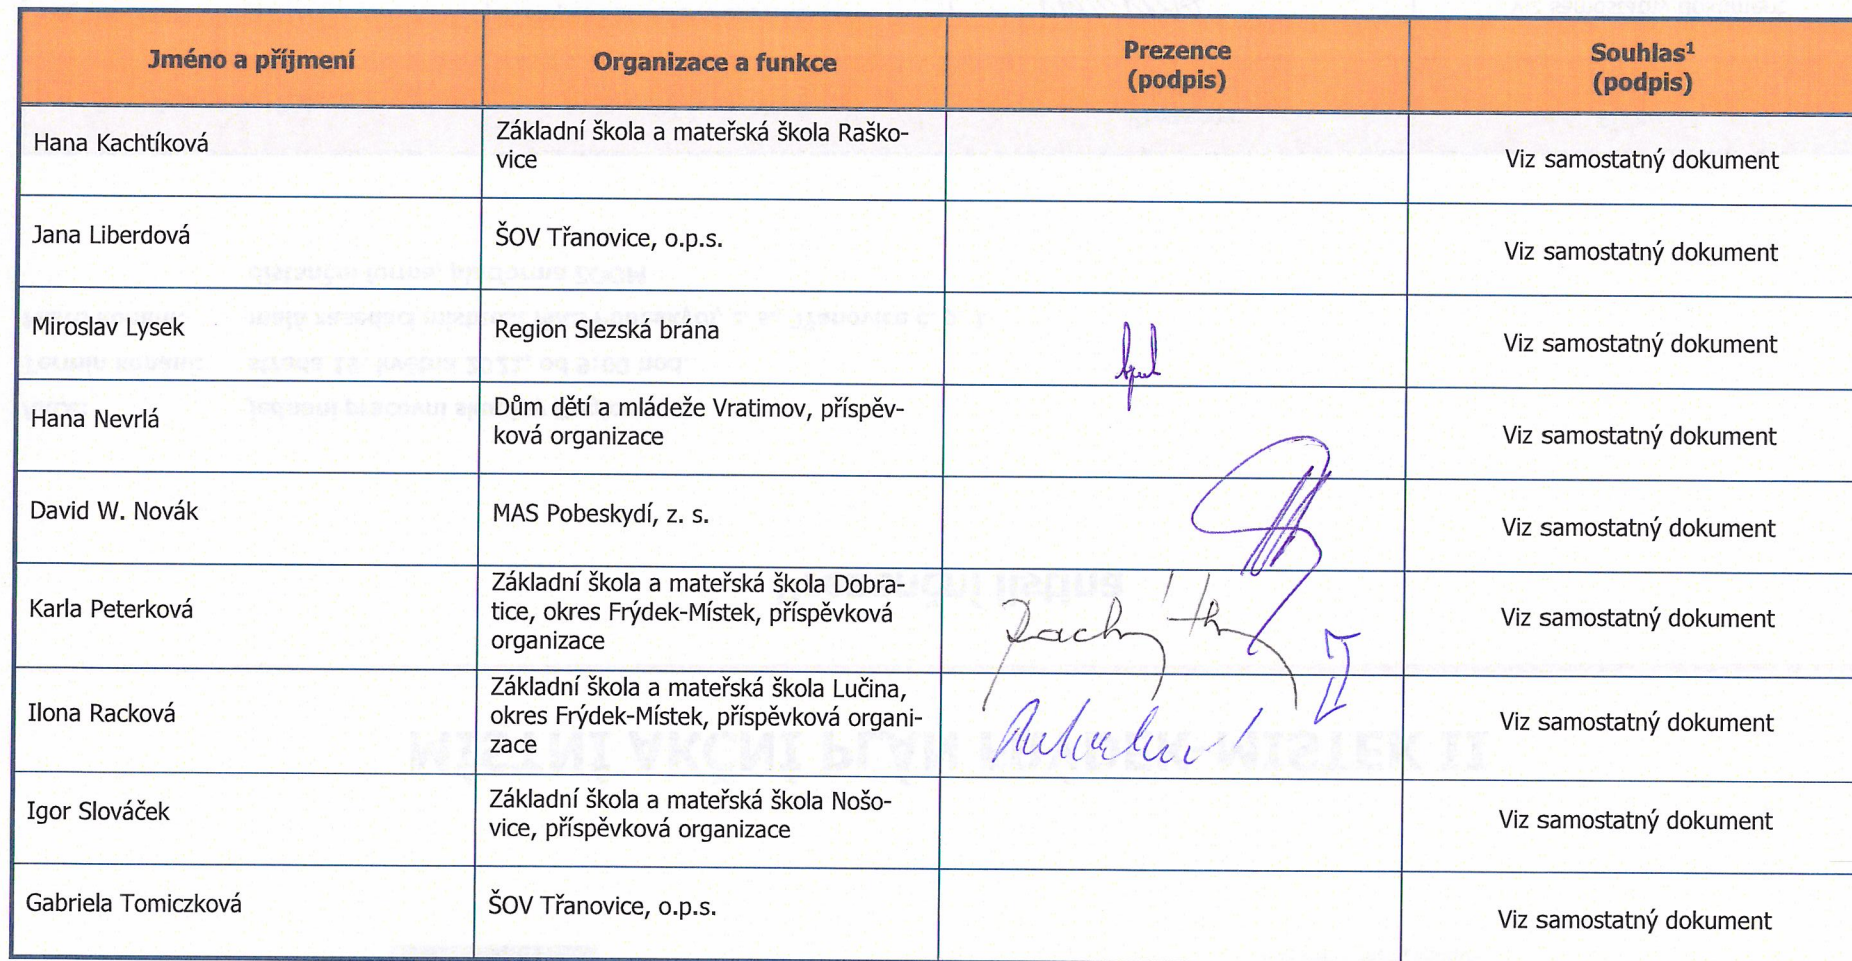 Jméno a příjmení
Organizace a funkce
Prezence
(podpis)
Souhlas¹
(podpis)
Hana Kachtíková
Základní škola a mateřská škola Raško-
vice
Viz samostatný dokument
Jana Liberdová
ŠOV Třanovice, o.p.s.
Viz samostatný dokument
Miroslav Lysek
Region Slezská brána
Viz samostatný dokument
Hana Nevrlá
Dům dětí a mládeže Vratimov, příspěv-
ková organizace
Viz samostatný dokument
David W. Novák
MAS Pobeskydí, z. s.
Viz samostatný dokument
Karla Peterková
Základní škola a mateřská škola Dobra-
tice, okres Frýdek-Místek, příspěvková
organizace
Viz samostatný dokument
Ilona Racková
Základní škola a mateřská škola Lučina,
okres Frýdek-Místek, příspěvková organi-
zace
Viz samostatný dokument
Igor Slováček
Základní škola a mateřská škola Nošo-
vice, příspěvková organizace
Viz samostatný dokument
Gabriela Tomiczková
ŠOV Třanovice, o.p.s.
Viz samostatný dokument